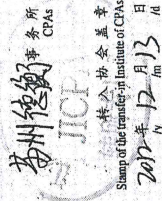 苏州德衡 事务所
CPAs
JICPA
转入协会盖章
Stamp of the transfer-in Institute of CPAs
2012年 12月 13日
/y /m /d